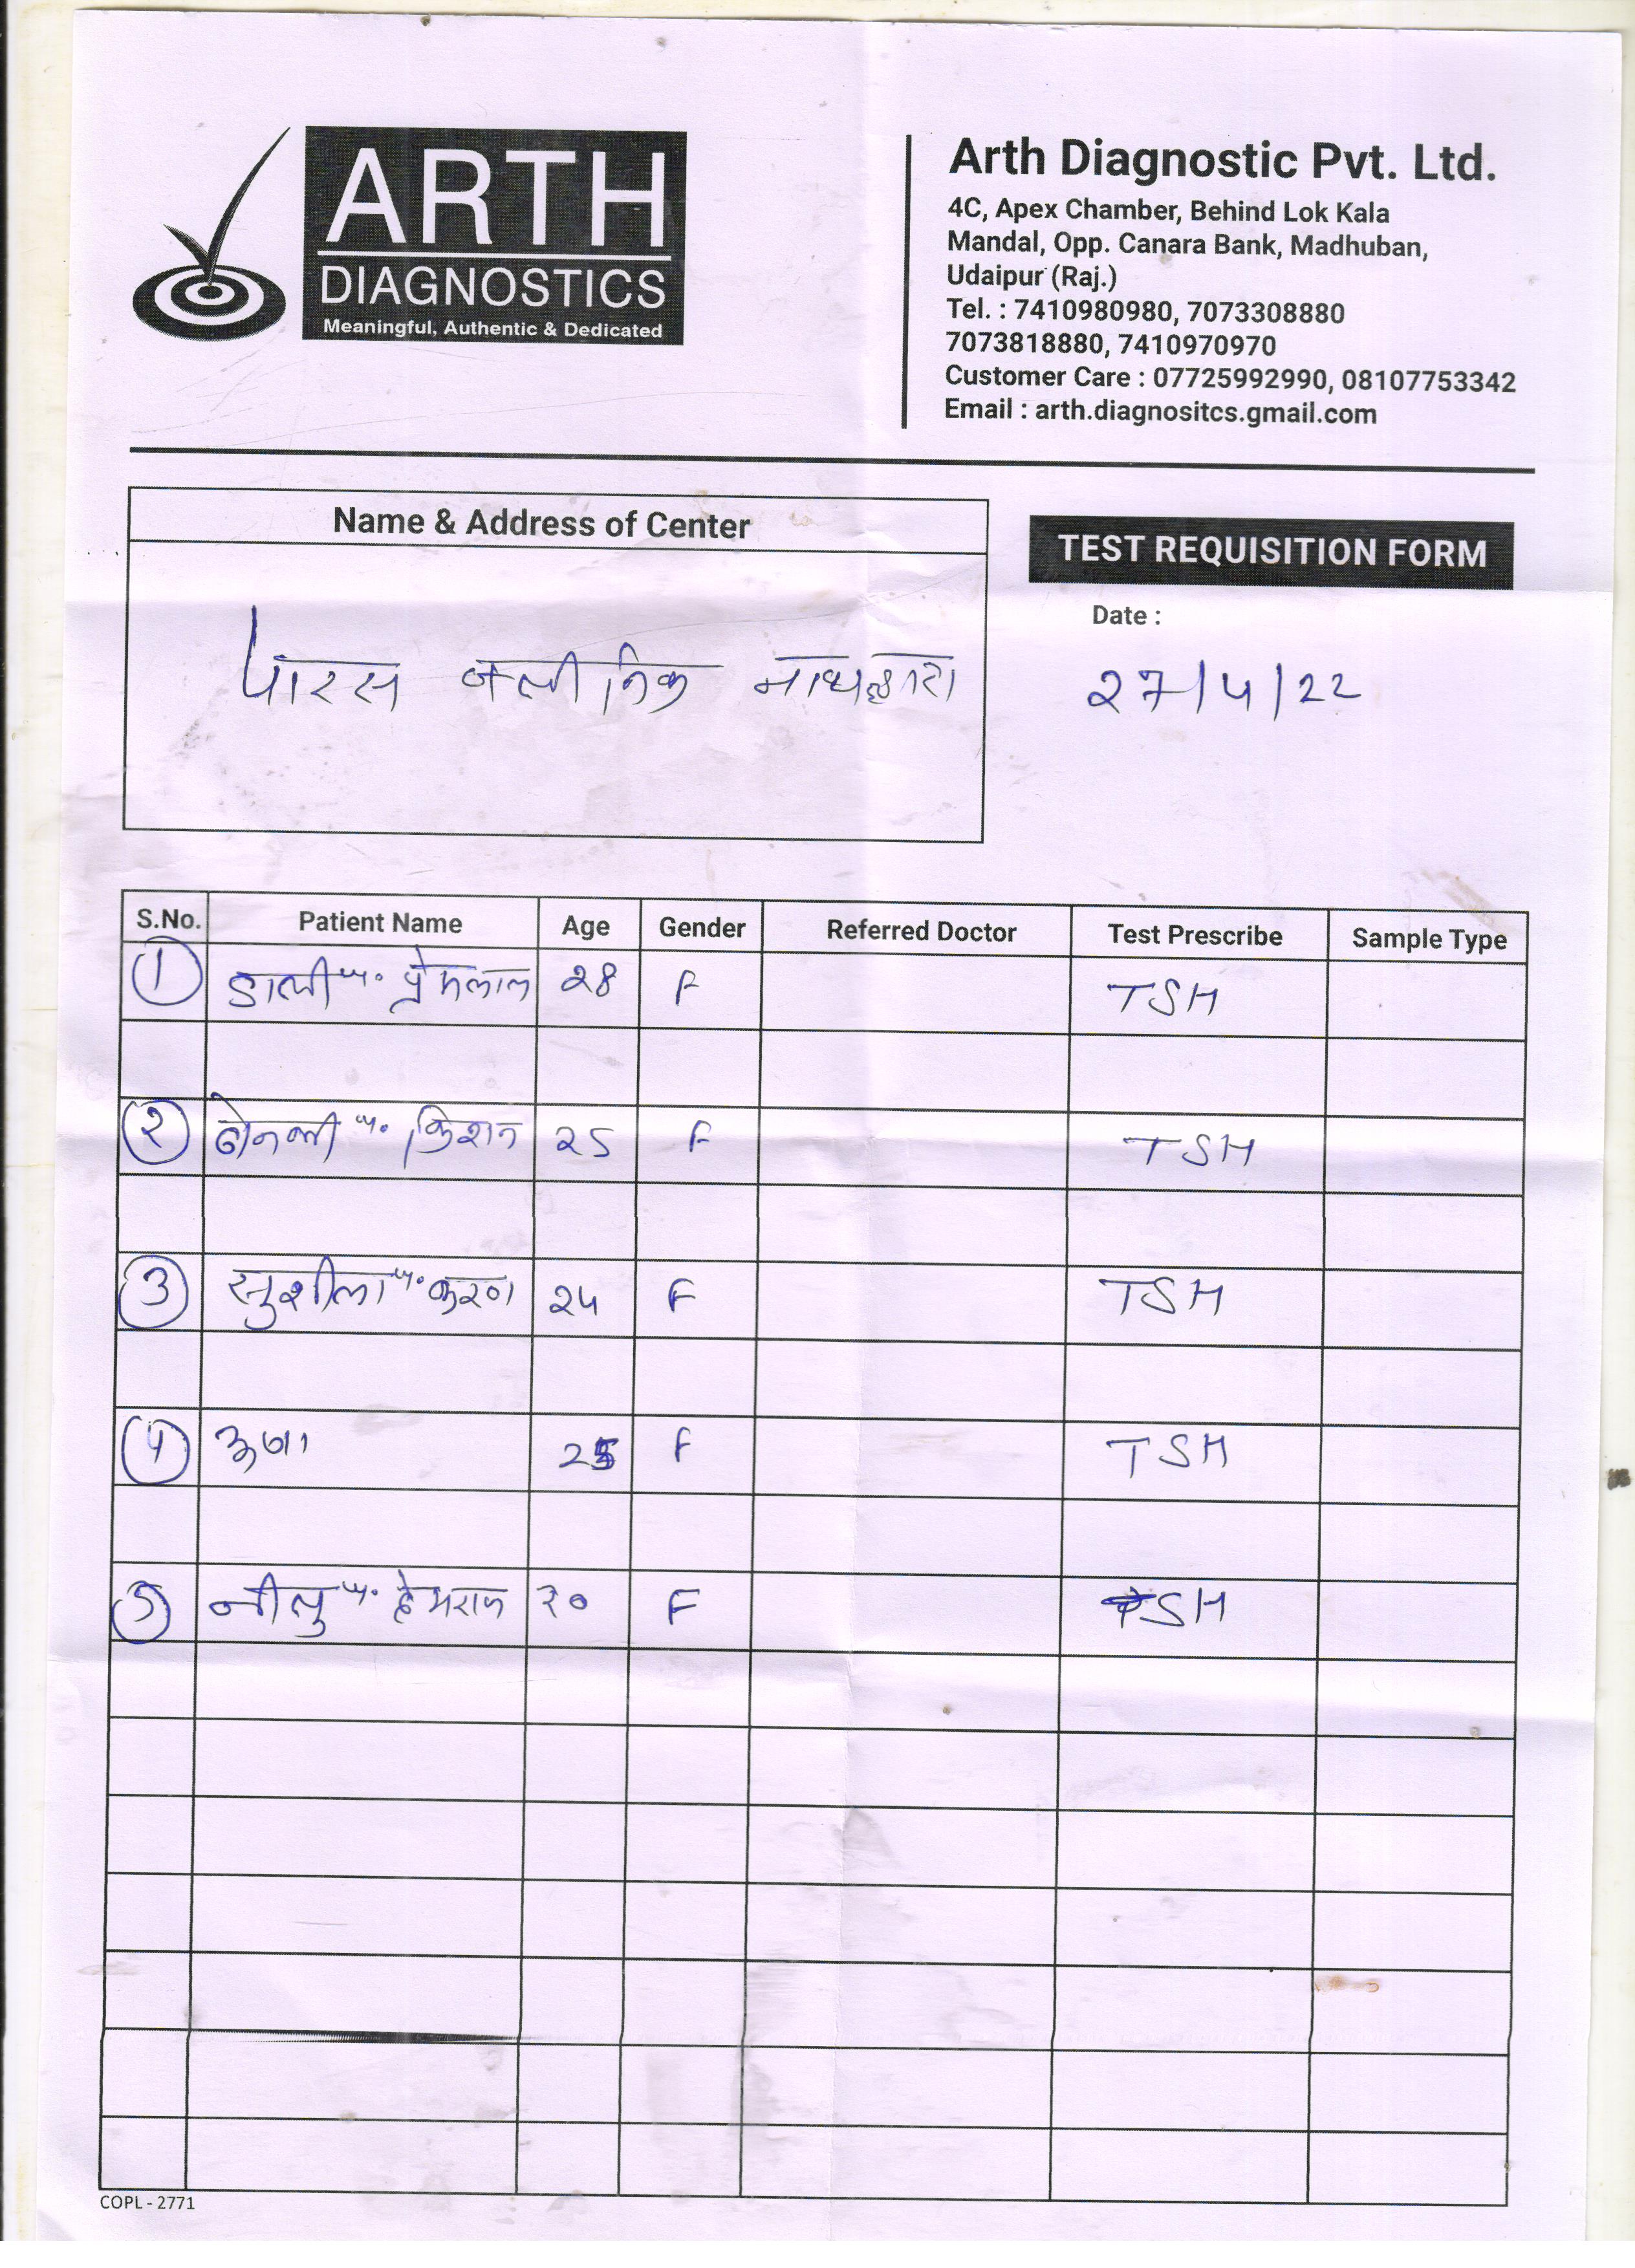 ARTH
DIAGNOSTICS
Meaningful, Authentic & Dedicated
Arth Diagnostic Pvt. Ltd.
4C, Apex Chamber, Behind Lok Kala
Mandal, Opp. Canara Bank, Madhuban,
Udaipur (Raj.)
Tel. : 7410980980, 7073308880
7073818880, 7410970970
Customer Care : 07725992990, 08107753342
Email : arth.diagnositcs.gmail.com
Name & Address of Center
पारस क्लीनिक नाथद्वारा
TEST REQUISITION FORM
Date :
27/4/22
S.No. Patient Name Age Gender Referred Doctor Test Prescribe Sample Type
1 डाली प्रेमलाल 28 F TSH
2 किशन 25 F TSH
3 सुशीला करण 24 F TSH
4 25 F TSH
5 नीलु हेमराज 20 F TSH
COPL - 2771